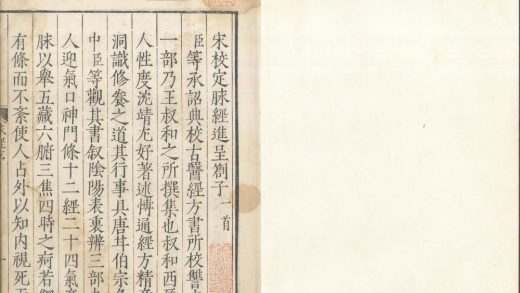 宋校定脉經進呈劄子一首
臣等承詔典校古醫經方書所校讐
一部乃王叔和之所撰集也叔和西
人性度沈靖尤好著述博通經方精意
洞識修養之道其行事具唐甘伯宗
中臣等觀其書叙隂陽表裏辨三部
人迎氣口神門條十二經二十四氣
脉以舉五藏六腑三焦四時之疴若
有條而不紊使人占外以知内視死